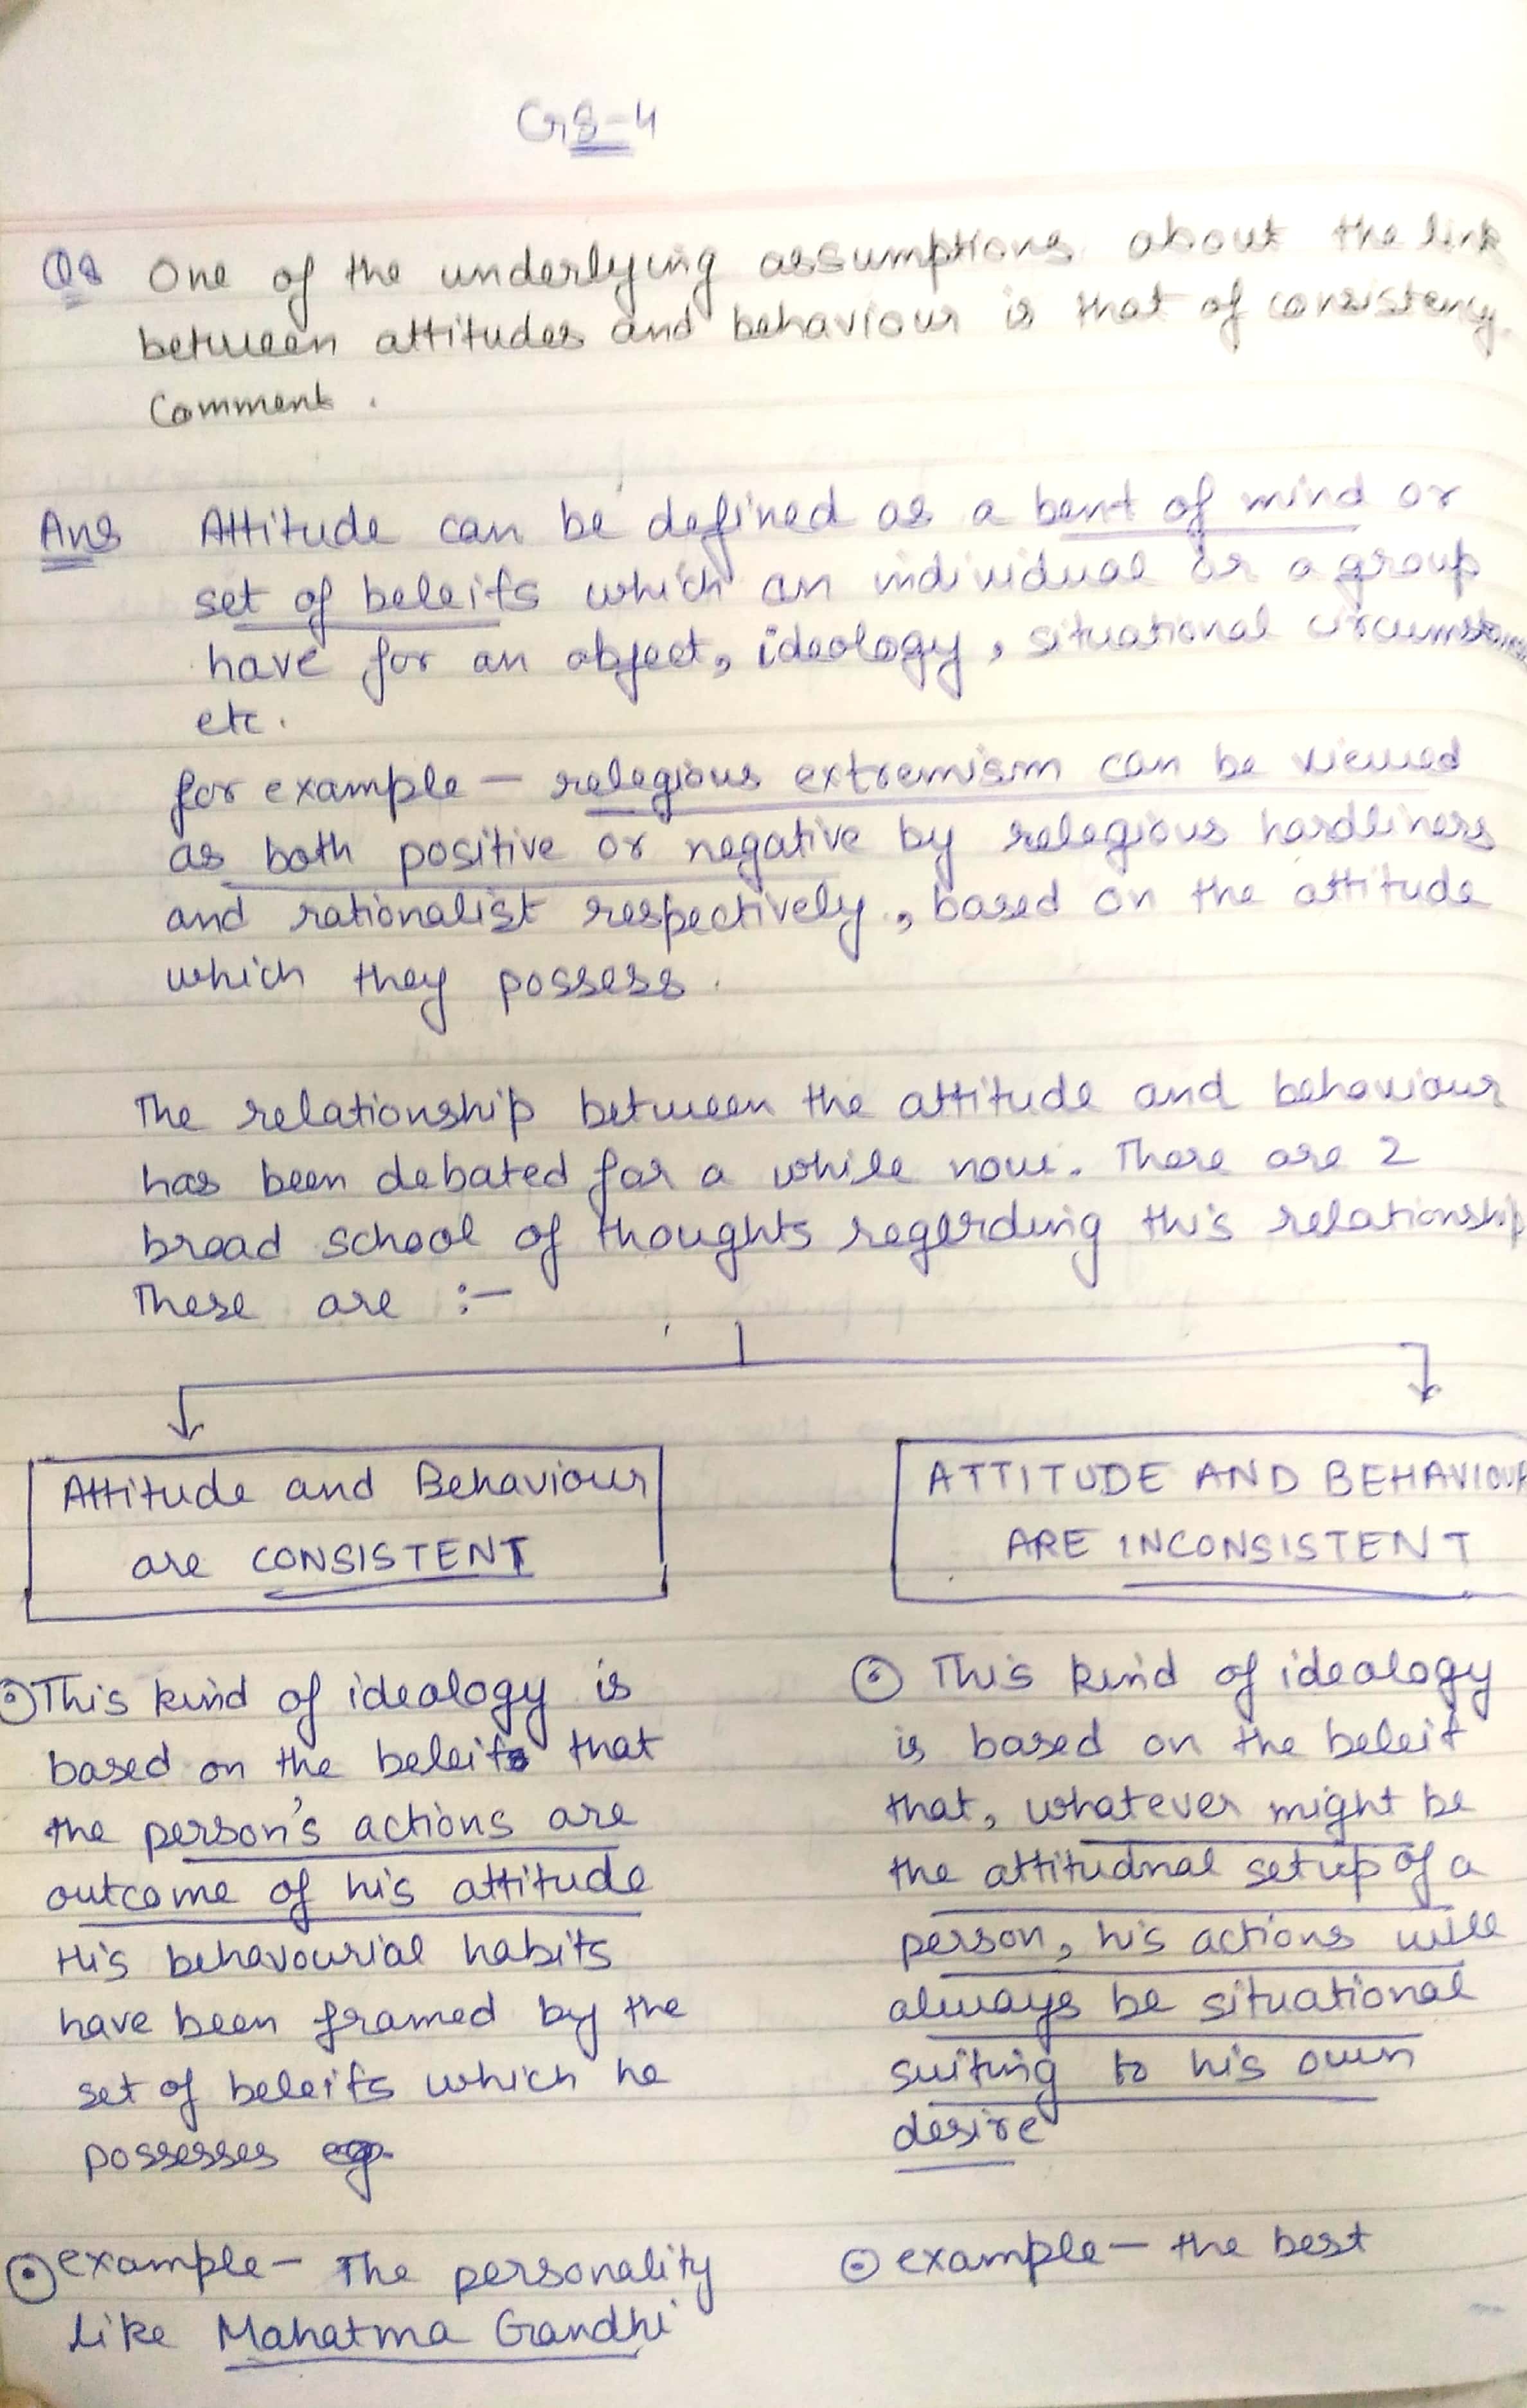 GS-4
Qs One of the underlying assumptions about the link
between attitudes and behaviour is that of consistency.
Comment.
Ans Attitude can be defined as a bent of mind or
set of beleifs which an individual or a group
have for an object, ideology, situational
etc.
for example - relegious extremism can be viewed
as both positive or negative by relegious hardliners
and rationalist respectively, based on the attitude
which they possess.
The relationship between the attitude and behaviour
has been debated for a while now. There are 2
broad school of thoughts regarding this relationship
These are :-
Attitude and Behaviour
are CONSISTENT
⊙ This kind of ideology is
based on the beleifs that
the person's actions are
outcome of his attitude
His behavourial habits
have been framed by the
set of beleifs which he
possesses
⊙ example - The personality
like Mahatma Gandhi
ATTITUDE AND BEHAVIOUR
ARE INCONSISTENT
⊙ This kind of ideology
is based on the beleif
that, whatever might be
the attitudnal setup of a
person, his actions will
always be situational
suiting to his own
desire
⊙ example - the best